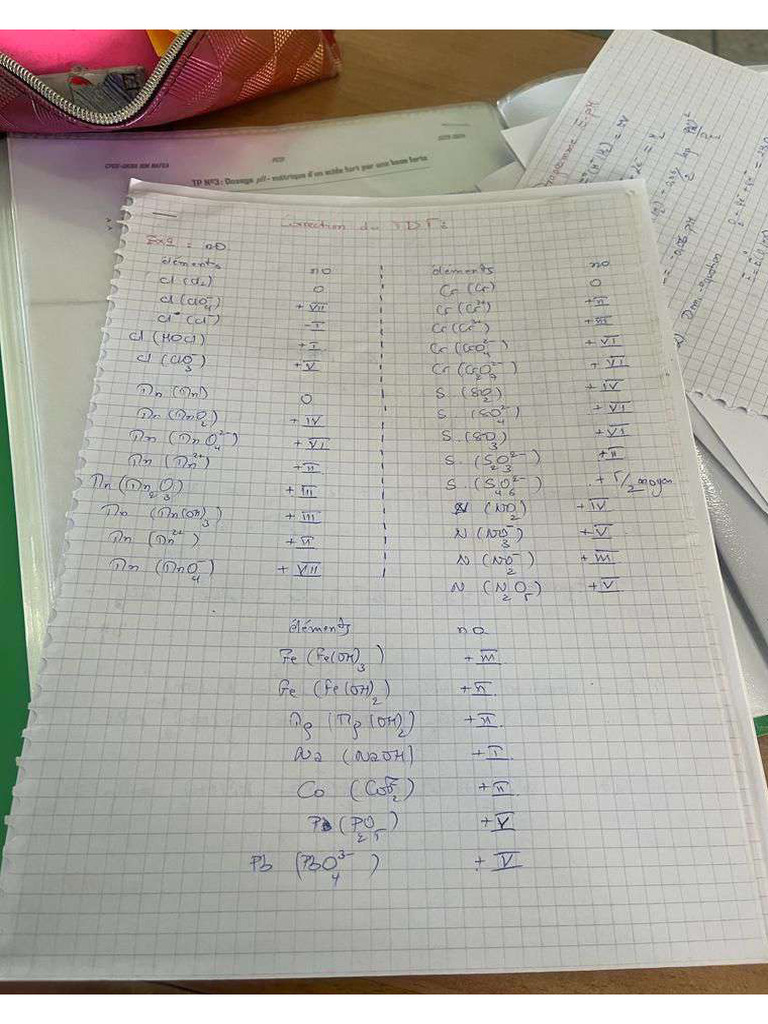 TP N°3 : Dosage pH-métrique d'un acide fort par une base forte
Correction du TD
Ex1 : no
éléments no
Cl (Cl₂) 0
Cl (ClO₄⁻) + VII
Cl⁻ (Cl⁻) - I
Cl (HOCl) + I
Cl (ClO₃⁻) + V
Mn (Mn) 0
Mn (MnO₂) + IV
Mn (MnO₄²⁻) + VI
Mn (Mn²⁺) + II
Mn (Mn₂O₃) + III
Mn (Mn(OH)₃) + III
Mn (Mn²⁺) + II
Mn (MnO₄⁻) + VII
éléments no
Cr (Cr) 0
Cr (Cr²⁺) + II
Cr (Cr³⁺) + III
Cr (CrO₄²⁻) + VI
Cr (Cr₂O₇²⁻) + VI
S (SO₂) + IV
S. (SO₄²⁻) + VI
S. (SO₃) + VI
S. (S₂O₃²⁻) + II
S. (S₄O₆²⁻) + 5/2 moyen
N (NO₂) + IV
N (NO₃⁻) + V
N (NO₂⁻) + III
N (N₂O₅) + V
éléments no
Fe (Fe(OH)₃) + III
Fe (Fe(OH)₂) + II
Mg (Mg(OH)₂) + II
Na (NaOH) + I
Co + II
P (P₂O₅) + V
Pb (PbO₄³⁻) + V